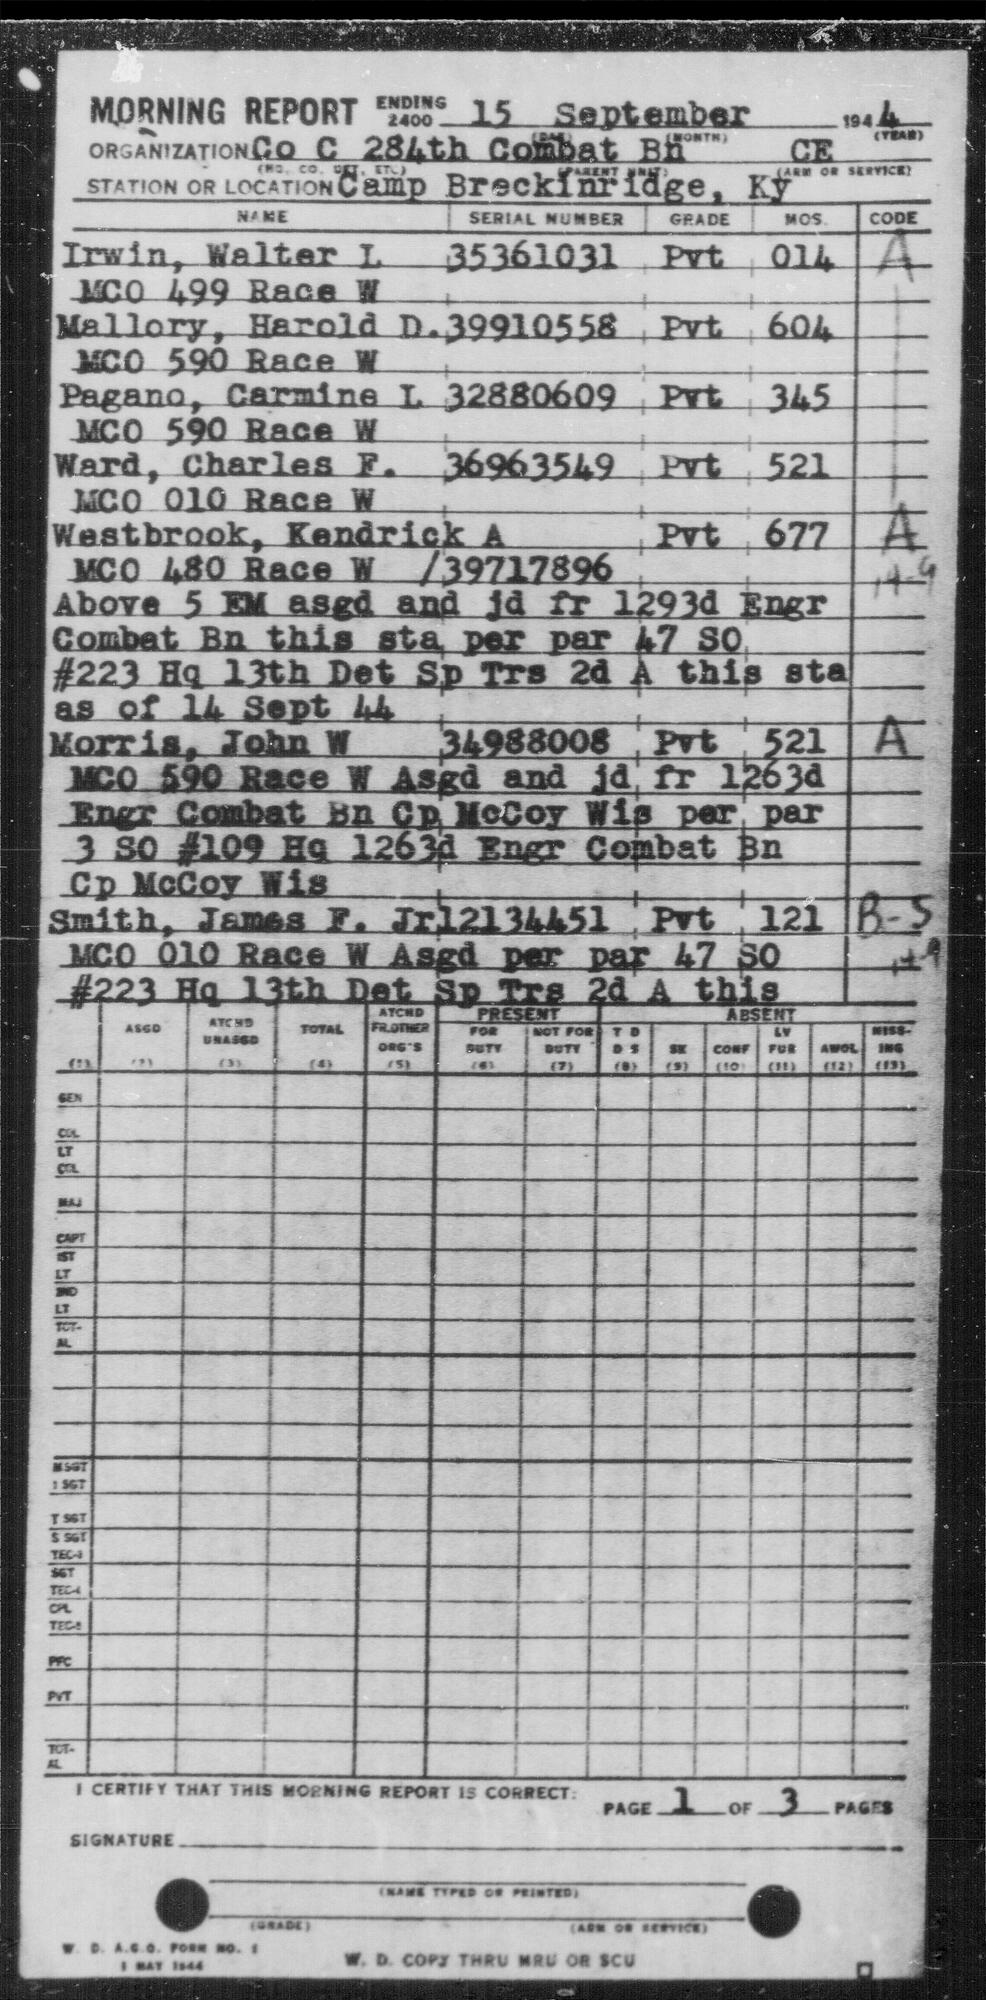 MORNING REPORT ENDING 2400 15 September 1944
(DAY) (MONTH) (YEAR)
ORGANIZATION Co C 284th Combat Bn CE
(HQ. CO. DET. ETC) (PARENT UNIT) (ARM OR SERVICE)
STATION OR LOCATION Camp Breckinridge, Ky
NAME SERIAL NUMBER GRADE MOS. CODE
Irwin, Walter L 35361031 Pvt 014 A
MCO 499 Race W
Mallory, Harold D. 39910558 Pvt 604
MCO 590 Race W
Pagano, Carmine L 32880609 Pvt 345
MCO 590 Race W
Ward, Charles F. 36963549 Pvt 521
MCO 010 Race W
Westbrook, Kendrick A Pvt 677 A
MCO 480 Race W /39717896 14-9
Above 5 EM asgd and jd fr 1293d Engr
Combat Bn this sta per par 47 SO
#223 Hq 13th Det Sp Trs 2d A this sta
as of 14 Sept 44
Morris, John W 34988008 Pvt 521 A
MCO 590 Race W Asgd and jd fr 1263d
Engr Combat Bn Cp McCoy Wis per par
3 SO #109 Hq 1263d Engr Combat Bn
Cp McCoy Wis
Smith, James F. Jr 12134451 Pvt 121 B-5
MCO 010 Race W Asgd per par 47 SO 14-9
#223 Hq 13th Det Sp Trs 2d A this
PRESENT ABSENT
ASGD ATCHD UNASGD TOTAL ATCHD FR.OTHER ORG'S FOR DUTY NOT FOR DUTY T D D S SK CONF LV FUR AWOL MISS-ING
(1) (2) (3) (4) (5) (6) (7) (8) (9) (10) (11) (12) (13)
GEN
COL
LT
COL
MAJ
CAPT
1ST
LT
2ND
LT
TOT-
AL
M SGT
1 SGT
T SGT
S SGT
TEC-3
SGT
TEC-4
CPL
TEC-5
PFC
PVT
TOT-
AL
I CERTIFY THAT THIS MORNING REPORT IS CORRECT:
PAGE 1 OF 3 PAGES
SIGNATURE
(NAME TYPED OR PRINTED)
(GRADE) (ARM OR SERVICE)
W. D. A.G.O. FORM NO. 1
1 MAY 1944
W. D. COPY THRU MRU OR SCU